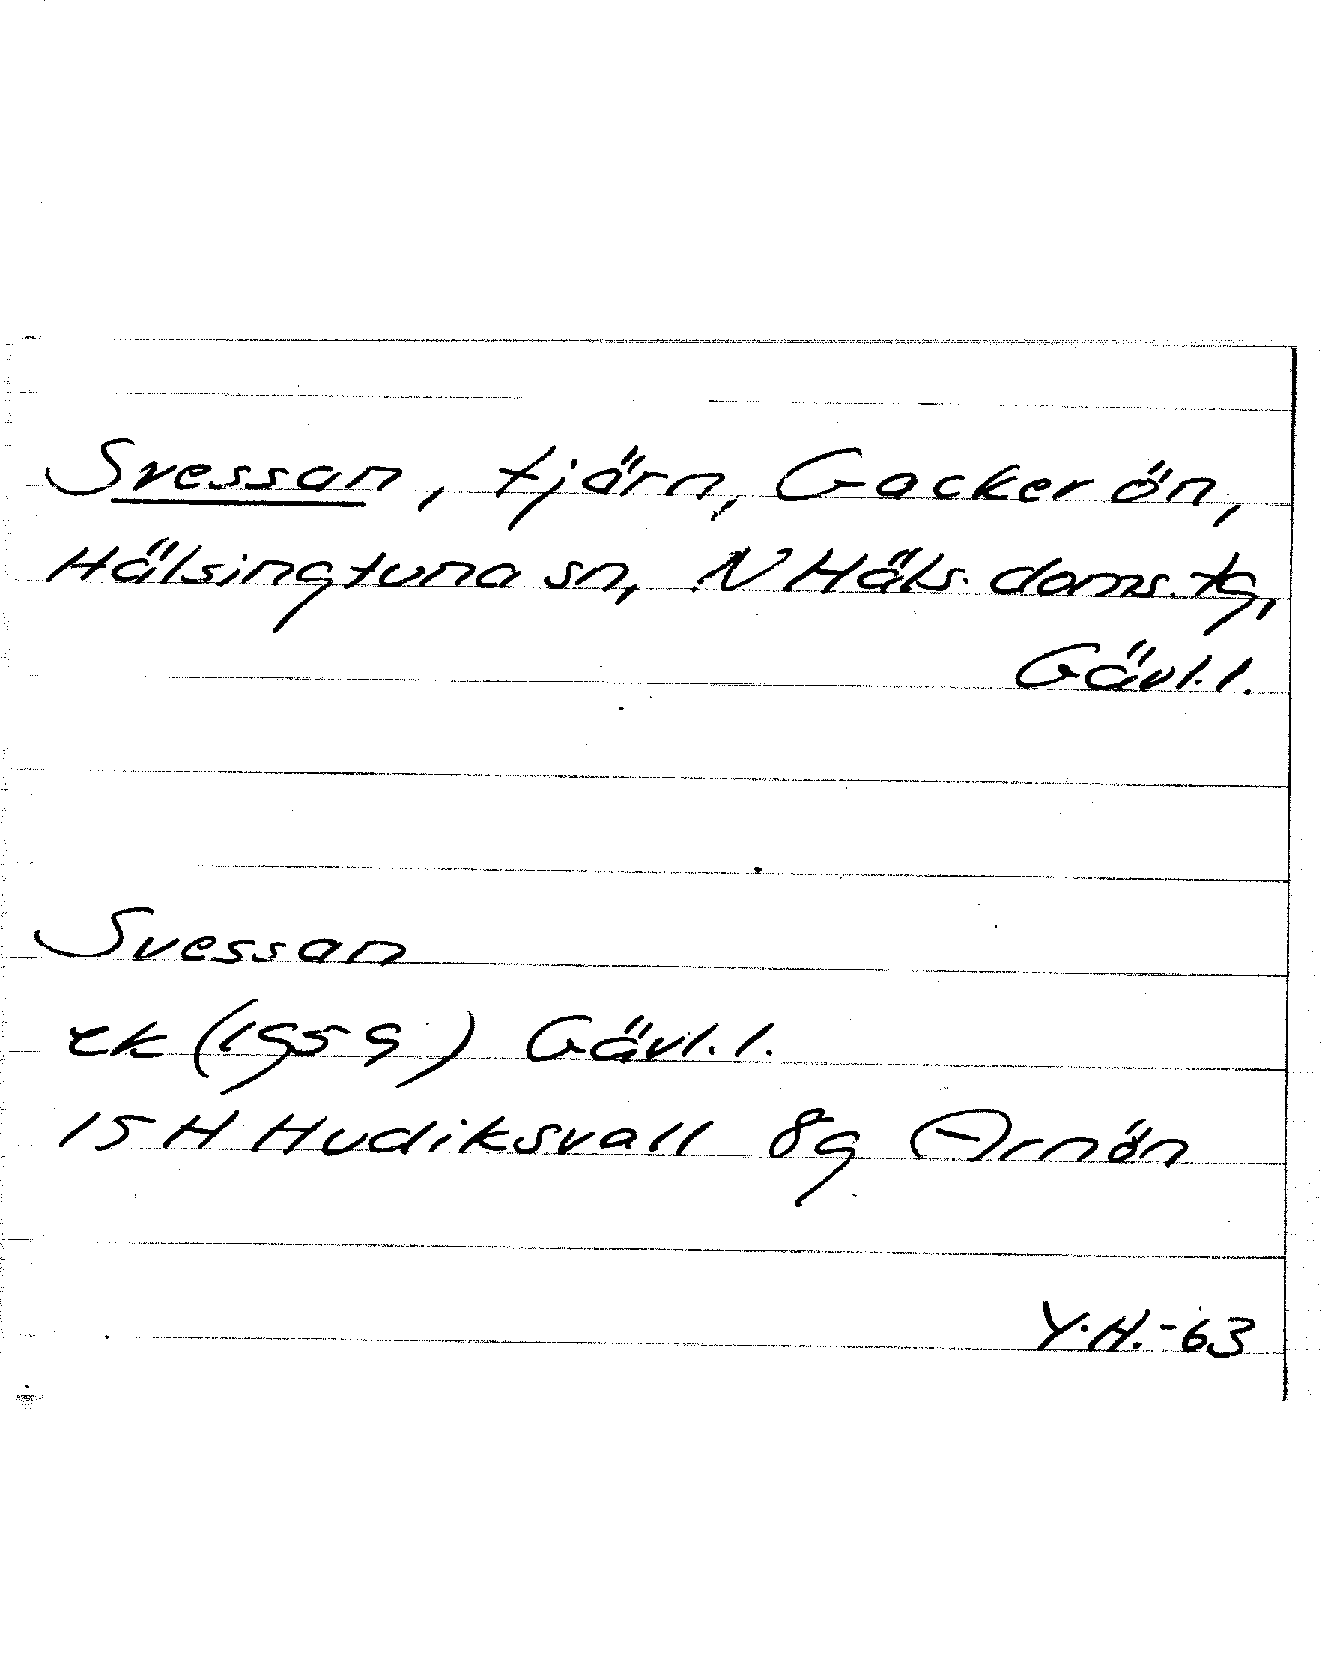 Svessan, tjärn, Gackerön,
Hälsingtuna sn, N Häls. doms. tg,
Gävl. l.
Svessan
ek (1959) Gävl. l.
15 H Hudiksvall 8g Arnön
Y.H.-63